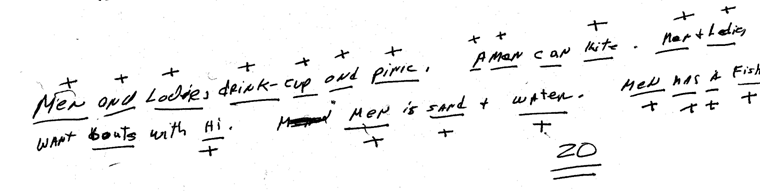 Men and Ladies drink-cup and picnic. A man can kite. Men + Ladies
want bouts with Hi. Men is sand + water. Men has a Fish
20